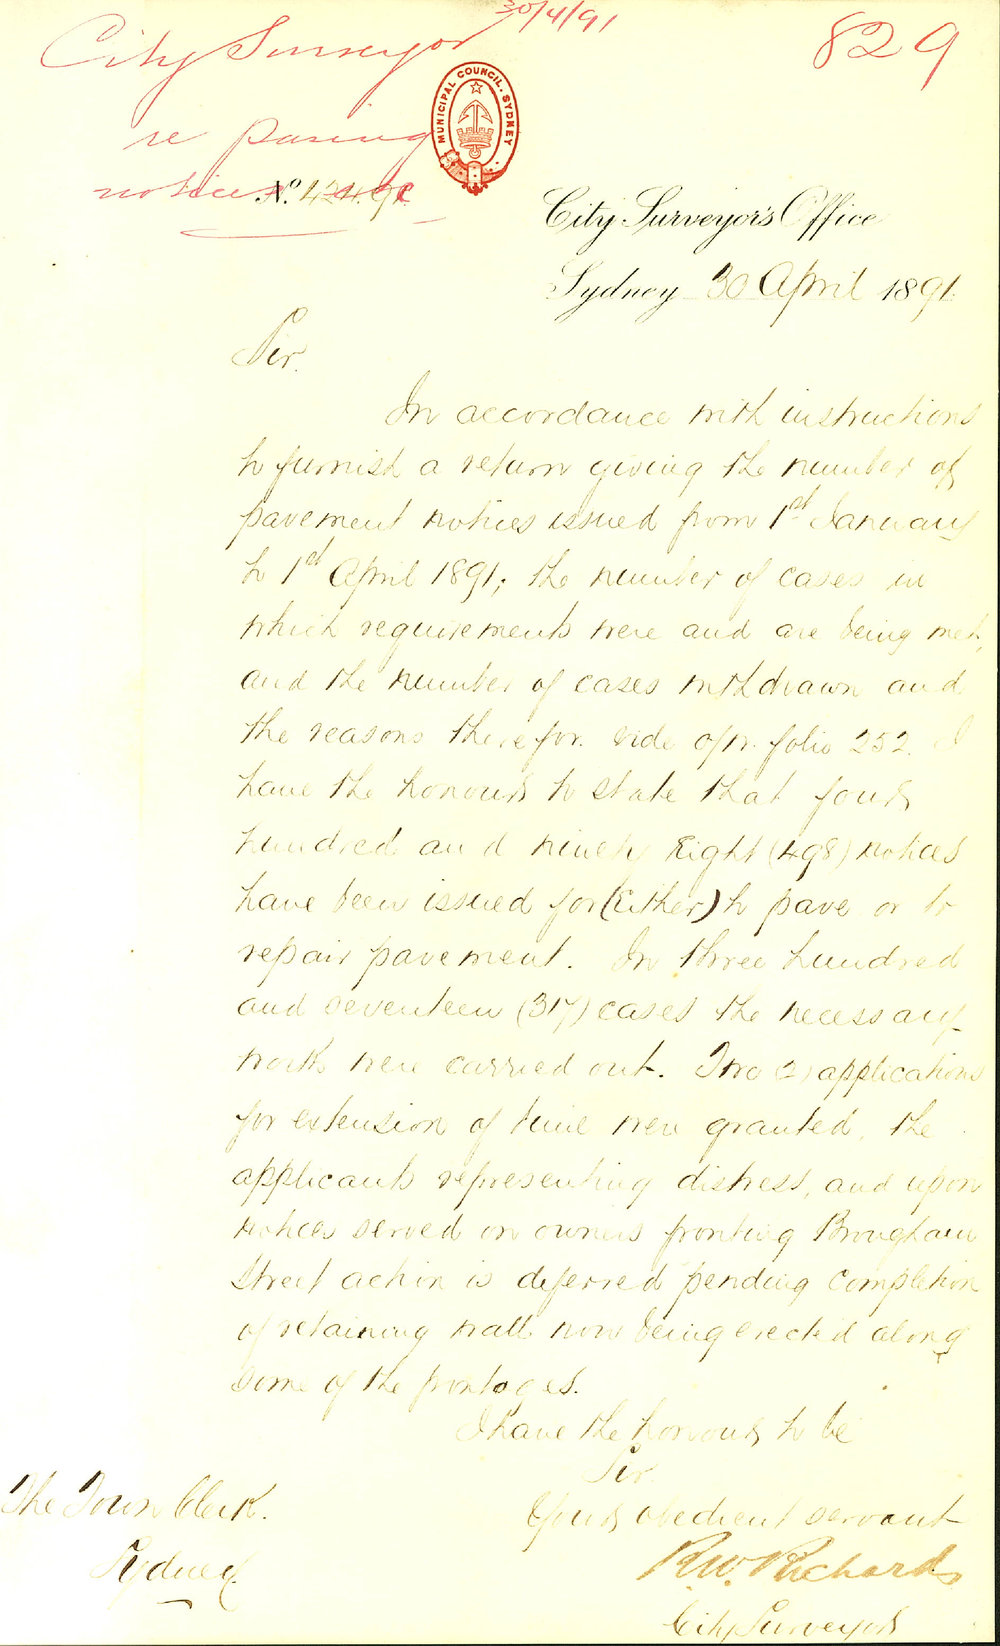 30/4/91
829
City Surveyor
re paving
notices
MUNICIPAL COUNCIL. SYDNEY
No.
City Surveyor's Office
Sydney 30 April 1891
Sir.
In accordance with instructions
to furnish a return giving the number of
pavement notices issued from 1st January
to 1st April 1891; the number of cases in
which requirements were and are being met,
and the number of cases withdrawn and
the reasons therefor. vide folio 252. I
have the honour to state that four
hundred and ninety Eight (498) notices
have been issued for (Either) to pave or to
repair pavement. In three hundred
and seventeen (317) cases the necessary
works were carried out. Two (2) applications
for extension of time were granted, the
applicants representing distress, and upon
notices served on owners fronting Brougham
Street action is deferred pending completion
of retaining wall now being erected along
some of the frontages.
I have the honour to be
Sir.
Your obedient servant
R.W. Richards
City Surveyor
The Town Clerk.
Sydney.